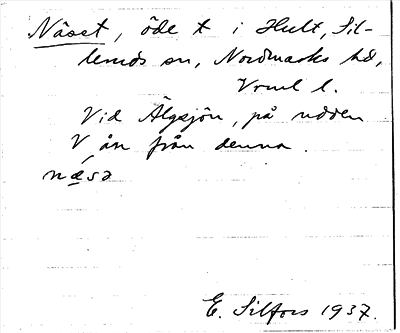 Näset, öde t i Hult, Sil-
leruds sn, Nordmarks hd,
Vrml l.
Vid Älgsjön, på udden
V ån från denna.
næsə
E. Silfors 1937.